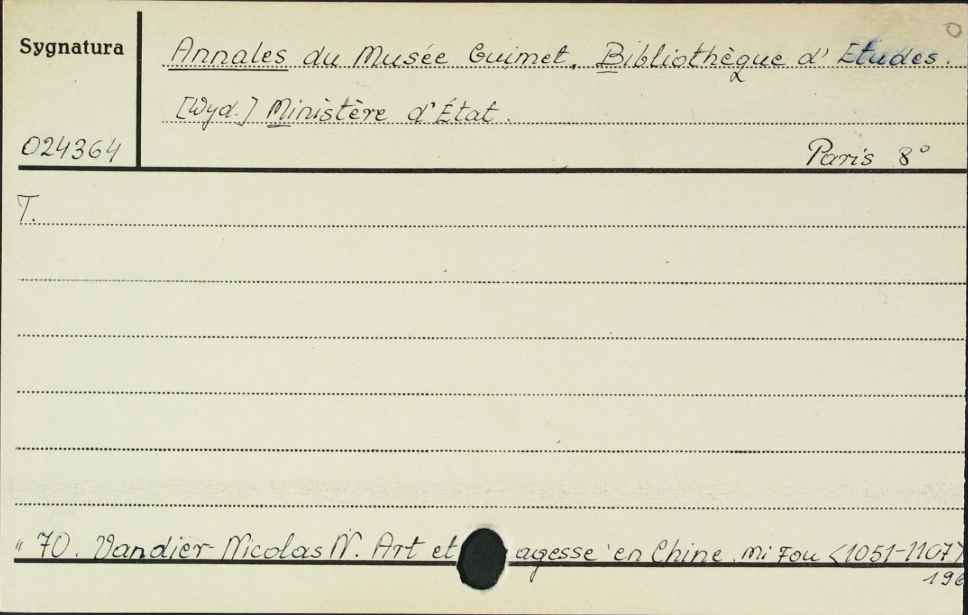 Sygnatura
Annales du Musée Guimet. Bibliothèque d'Etudes.
[Wyd.] Ministère d'État.
024364
Paris 8°
T.
" 70. Vandier-Nicolas N. Art et agesse en Chine. Mi Fou <1051-1107>
196